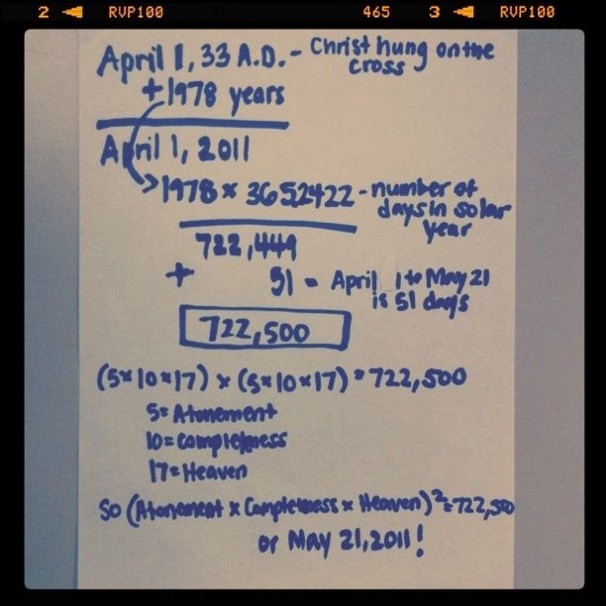 2 ◀ RVP100 465 3 ◀ RVP100
April 1, 33 A.D. - Christ hung on the
cross
+1978 years
April 1, 2011
1978 × 365.2422 - number of
days in solar
year
722,449
+ 51 = April 1 to May 21
is 51 days
722,500
(5×10×17) × (5×10×17) = 722,500
5= Atonement
10= Completeness
17= Heaven
So (Atonement × Completeness × Heaven)²=722,500
or May 21, 2011!